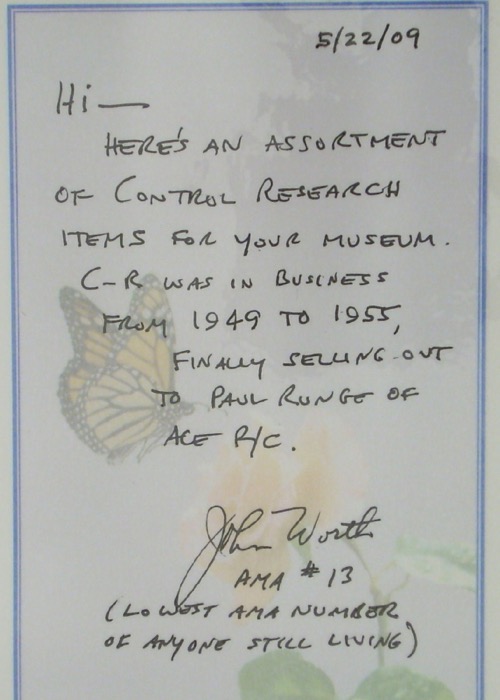 5/22/09
Hi—
HERE'S AN ASSORTMENT
OF CONTROL RESEARCH
ITEMS FOR YOUR MUSEUM.
C-R WAS IN BUSINESS
FROM 1949 TO 1955,
FINALLY SELLING OUT
TO PAUL RUNGE OF
ACE R/C.
John Worth
AMA #13
(LOWEST AMA NUMBER
OF ANYONE STILL LIVING)